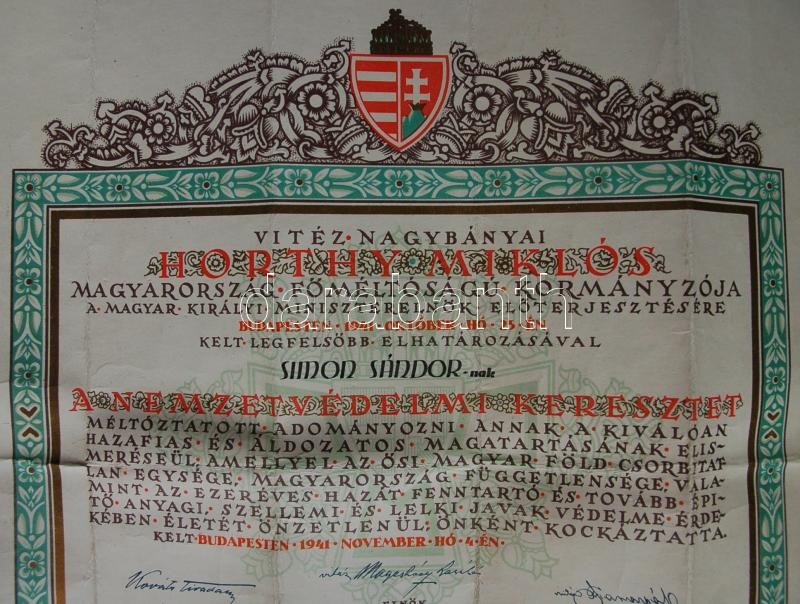 VITÉZ · NAGYBÁNYAI
HORTHY · MIKLÓS
MAGYARORSZÁG · FŐMÉLTÓSÁGÚ · KORMÁNYZÓJA
A · MAGYAR · KIRÁLYI · MINISZTERELNÖK · ELŐTERJESZTÉSÉRE
BUDAPESTEN · 1941 · OKTÓBER · HÓ · 15 · ÉN ·
KELT · LEGFELSŐBB · ELHATÁROZÁSÁVAL
SIMON SÁNDOR-nak
A · NEMZETVÉDELMI · KERESZTET
MÉLTÓZTATOTT · ADOMÁNYOZNI · ANNAK · A · KIVÁLÓAN
HAZAFIAS · ÉS · ÁLDOZATOS · MAGATARTÁSÁNAK · ELIS-
MERÉSEÜL, AMELLYEL · AZ · ŐSI · MAGYAR · FÖLD · CSORBÍTAT-
LAN · EGYSÉGE, MAGYARORSZÁG · FÜGGETLENSÉGE, VALA-
MINT · AZ · EZERÉVES · HAZÁT · FENNTARTÓ · ÉS · TOVÁBB · ÉPÍ-
TŐ · ANYAGI, SZELLEMI · ÉS · LELKI · JAVAK · VÉDELME · ÉRDE-
KÉBEN · ÉLETÉT · ÖNZETLENÜL, ÖNKÉNT · KOCKÁZTATTA.
KELT · BUDAPESTEN · 1941 · NOVEMBER · HÓ · 4 · ÉN ·
Kováts Tivadar
vitéz Magasházy László
ELNÖK
darabanth